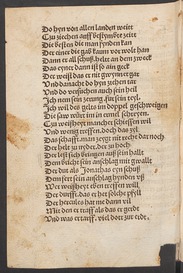 Do hyn von allen landen weitt
Czu ziechen auff bestymbet zeitt
Die besten die man fynden kan
Der einer die gab kaum vor wole han
Dann er all schuß helt an dem zweck
Das eyner dann ist so ain geck
Der weißt das er nit gwynnet gar
Und danache do hyn ziehen tar
Und do versuchen auch sein heil
Ich nem sein zerung für sein teyl
Ich wil des gelts im doppel geschweigen
Die saw würt im im ermel schreyen
Czu weißheyt manchen schiessen wil
Und wenig treffen doch das zyl
Das schafft man zeygt nit recht dar noch
Der helt zu nyder der zu hoch
Der lest sich bringen auß sein hallt
Dem bricht sein anschlag mit gwallt
Der dut als Jonathas eyn schuß
Dem fert sein anschlag hynden vß
Wer weißheyt eben treffen will
Der durfft das er het solche pfyl
Der hercules hat me dann vil
Mit den er traff als das er gerdt
Und was er traff viel dott zur erdt